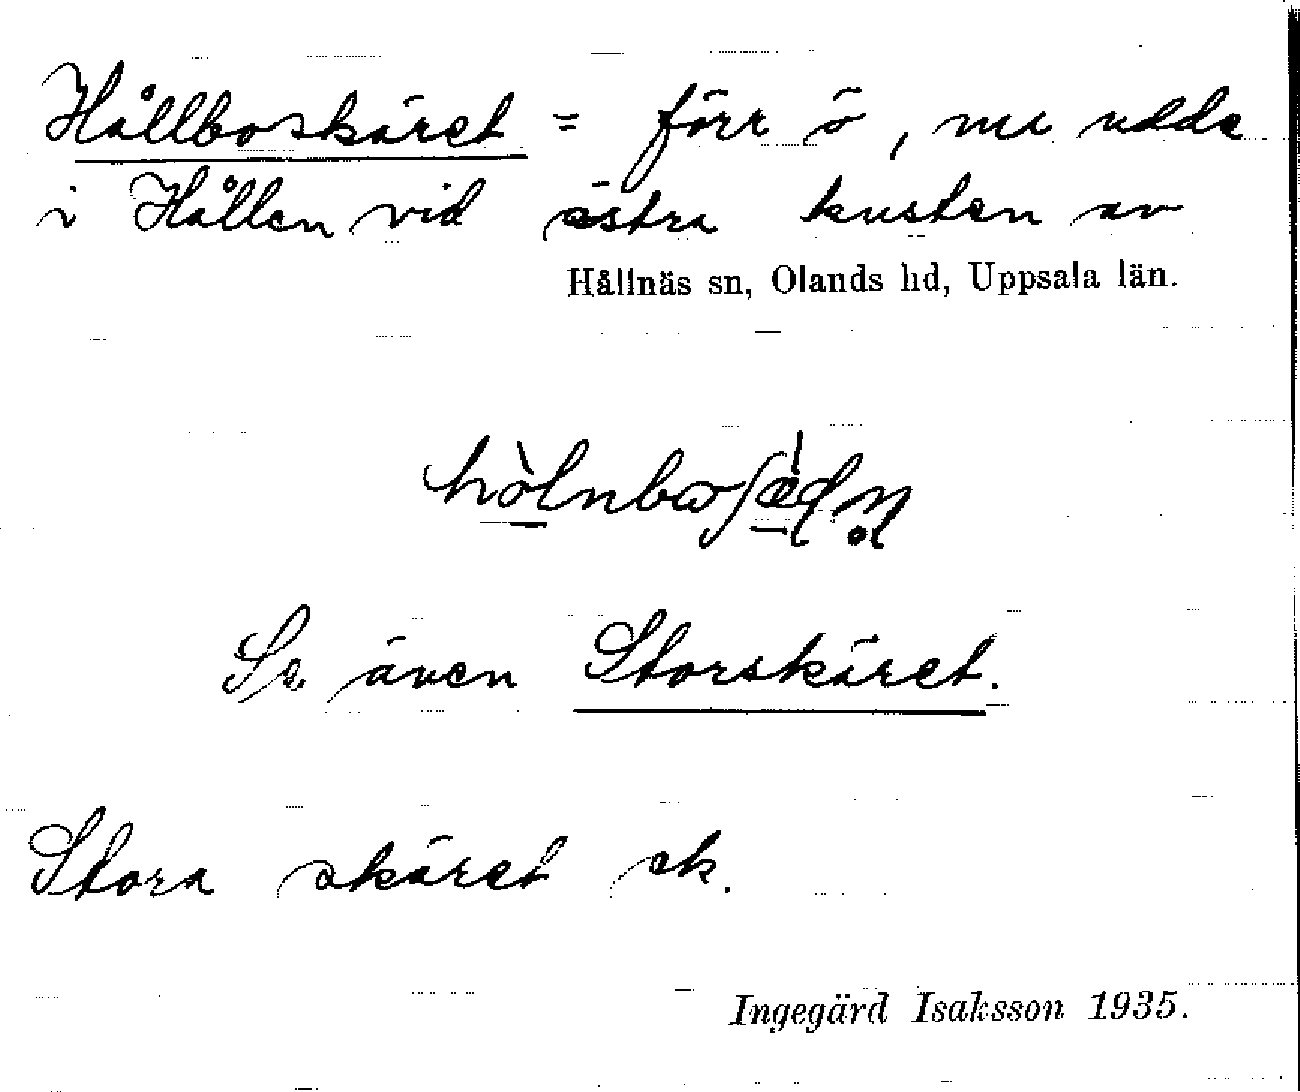 Hållboskäret = förr ö, nu udde
i Hållen vid östra kusten av
Hållnäs sn, Olands hd, Uppsala län.
Se även Storskäret.
Stora skäret ek.
Ingegärd Isaksson 1935.